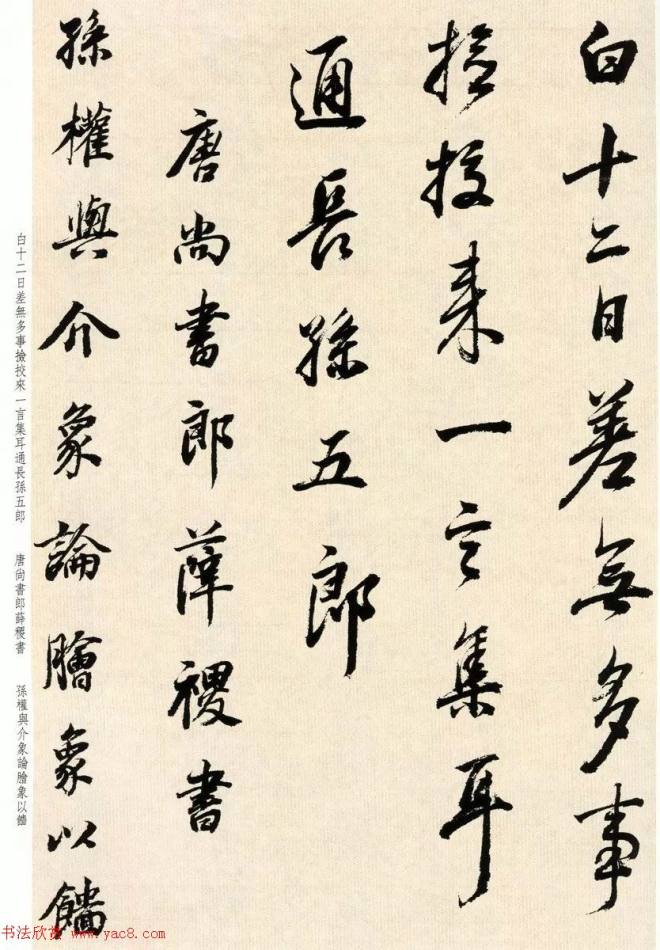 白十二日差無多事
撿挍来一言集耳
通長孫五郎
唐尚書郎薛稷書
孫權與介象論膾象以鯔
白十二日差無多事撿挍來一言集耳通長孫五郎　唐尚書郎薛稷書　孫權與介象論膾象以鯔
书法欣赏 www.yac8.com